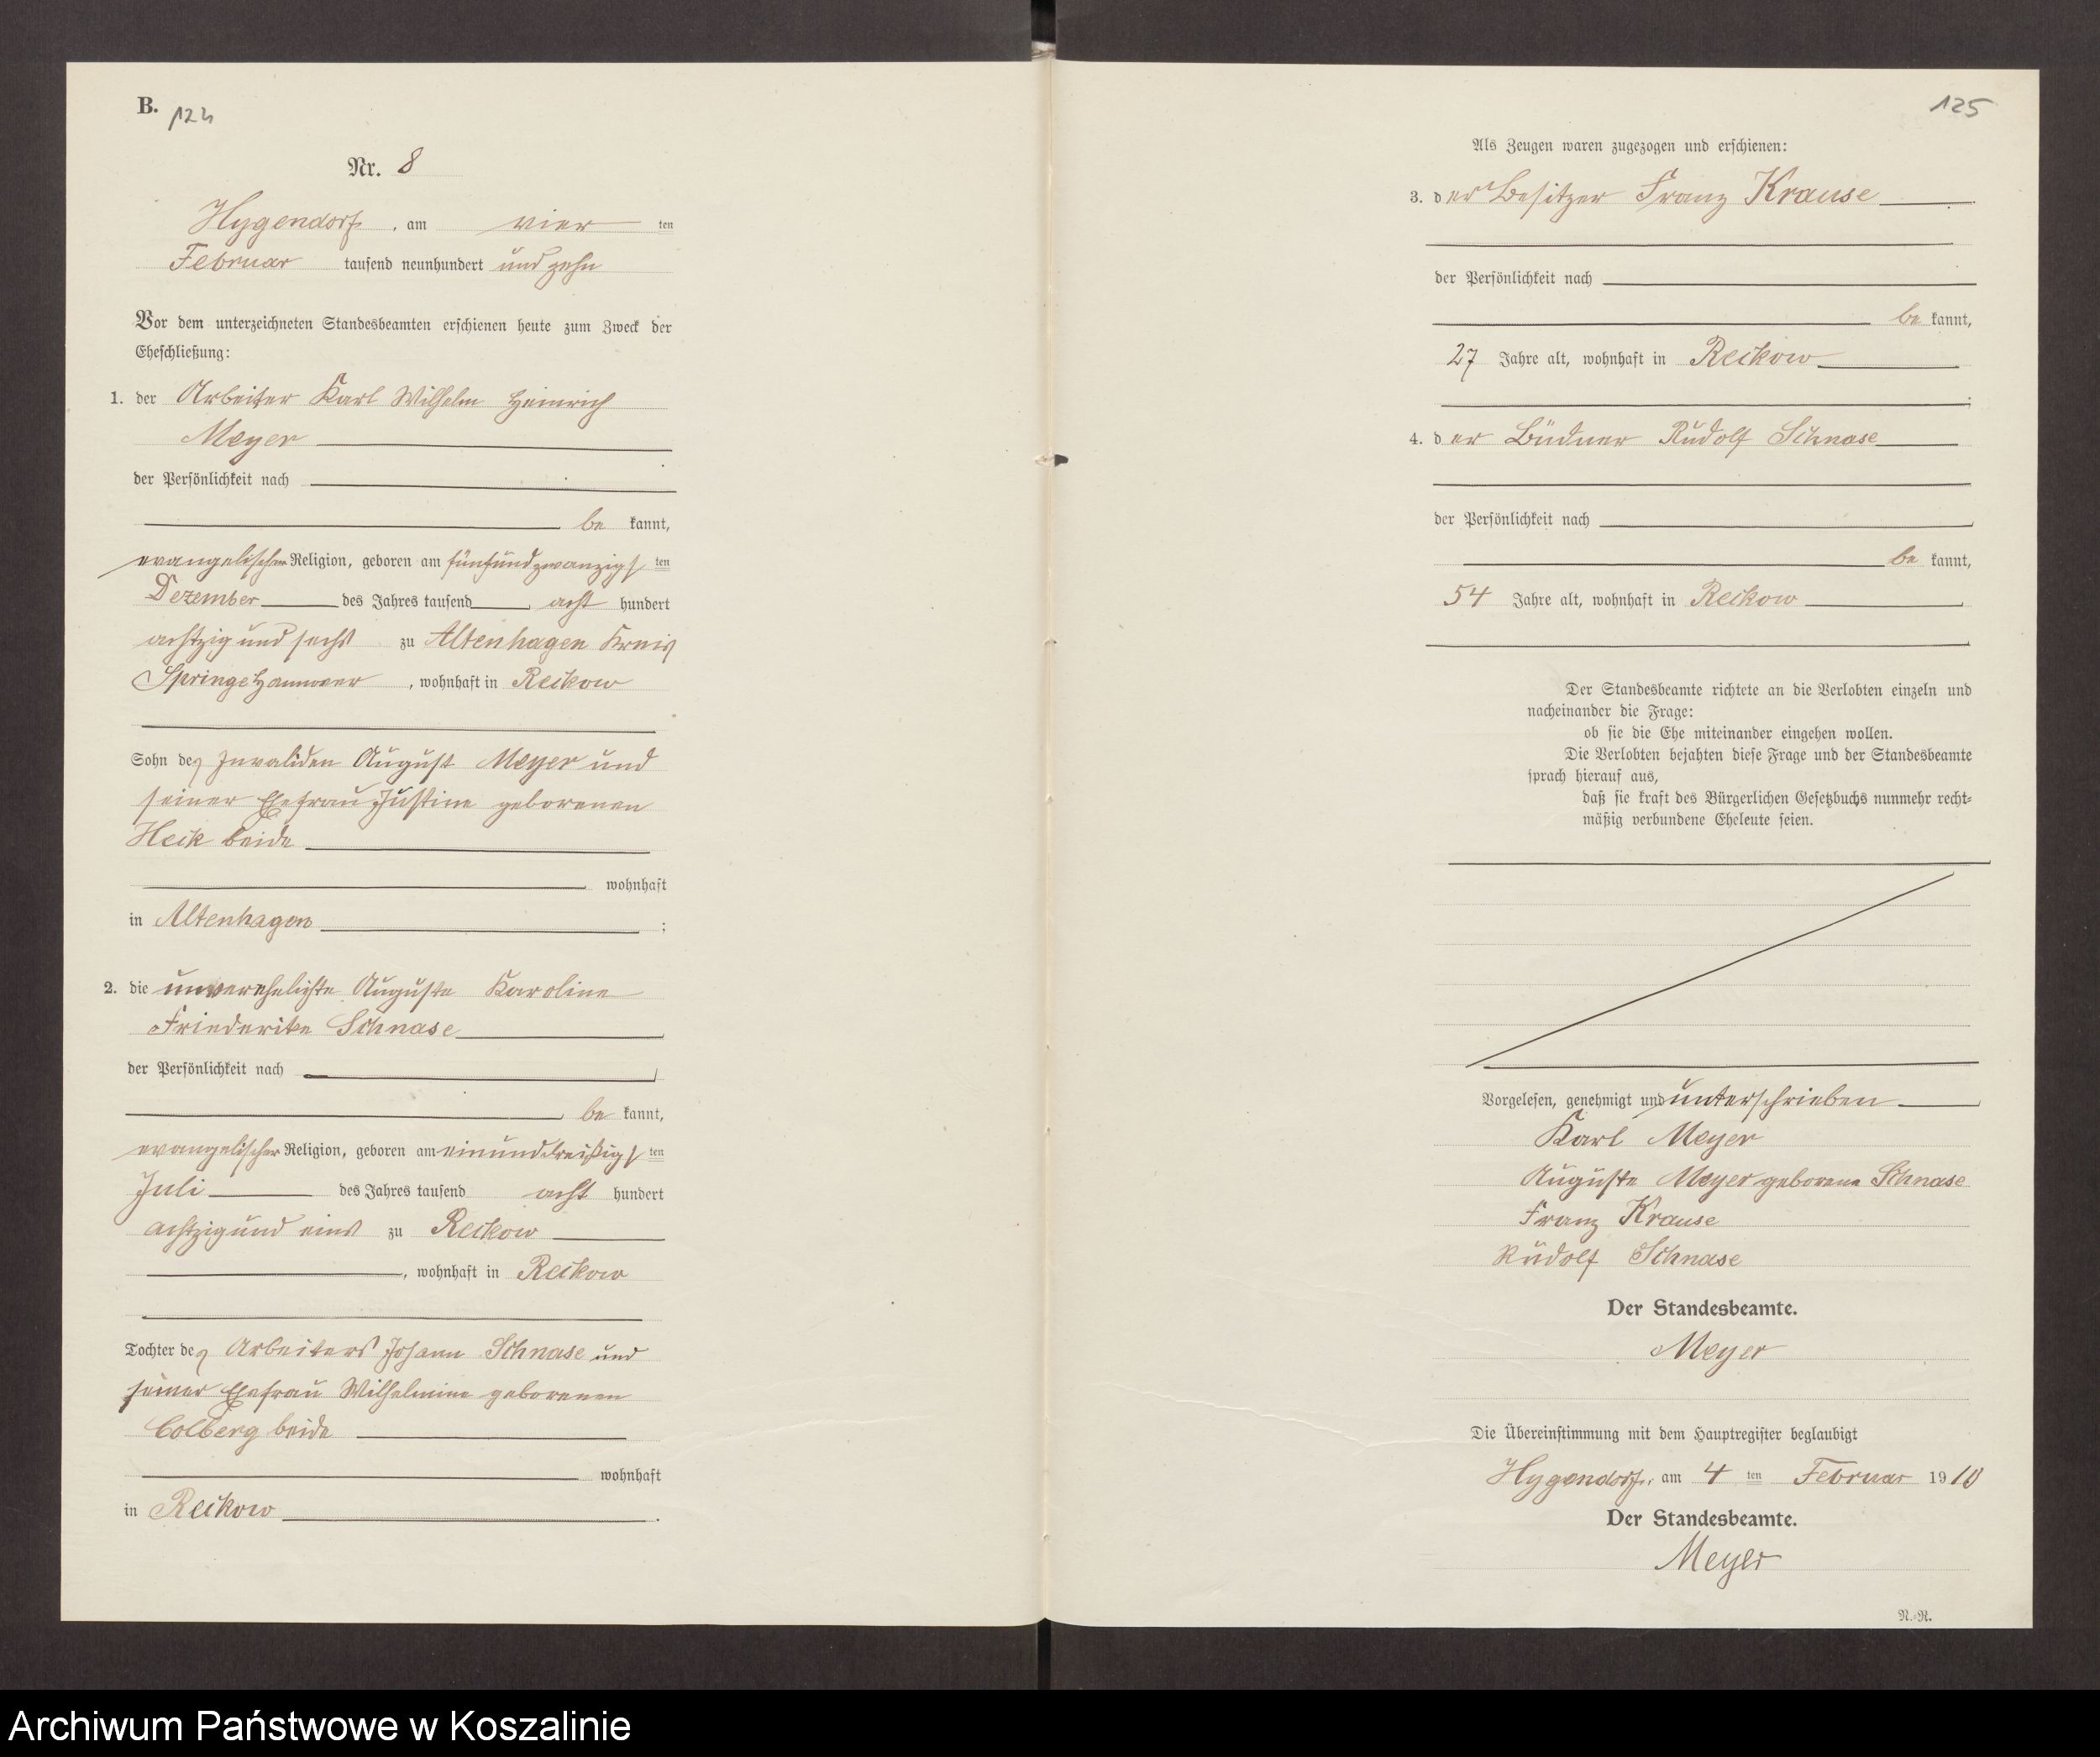 B. 124
Nr. 8
Hygendorf, am vier ten
Februar tausend neunhundert und zehn
Vor dem unterzeichneten Standesbeamten erschienen heute zum Zweck der
Eheschließung:
1. der Arbeiter Karl Wilhelm Heinrich
Meyer
der Persönlichkeit nach
be kannt,
evangelischer Religion, geboren am fünfundzwanzigs ten
Dezember des Jahres tausend acht hundert
achtzig und sechs zu Altenhagen Kreis
Springe Hannover, wohnhaft in Reckow
Sohn des Invaliden August Meyer und
seiner Ehefrau Justine geborenen
Heck beide
wohnhaft
in Altenhagen;
2. die unverehelichte Auguste Karoline
Friederike Schnase
der Persönlichkeit nach
be kannt,
evangelischer Religion, geboren am einunddreißigs ten
Juli des Jahres tausend acht hundert
achtzig und eins zu Reckow
, wohnhaft in Reckow
Tochter des Arbeiters Johann Schnase und
seiner Ehefrau Wilhelmine geborenen
Colberg beide
wohnhaft
in Reckow.
125
Als Zeugen waren zugezogen und erschienen:
3. der Besitzer Franz Krause
der Persönlichkeit nach
be kannt,
27 Jahre alt, wohnhaft in Reckow
;
4. der Büdner Rudolf Schnase
der Persönlichkeit nach
be kannt,
54 Jahre alt, wohnhaft in Reckow
Der Standesbeamte richtete an die Verlobten einzeln und
nacheinander die Frage:
ob sie die Ehe miteinander eingehen wollen.
Die Verlobten bejahten diese Frage und der Standesbeamte
sprach hierauf aus,
daß sie kraft des Bürgerlichen Gesetzbuchs nunmehr recht-
mäßig verbundene Eheleute seien.
Vorgelesen, genehmigt und unterschrieben
Karl Meyer
Auguste Meyer geborene Schnase
Franz Krause
Rudolf Schnase
Der Standesbeamte.
Meyer
Die Übereinstimmung mit dem Hauptregister beglaubigt
Hygendorf, am 4 ten Februar 1910
Der Standesbeamte.
Meyer
N.-N.
Archiwum Państwowe w Koszalinie